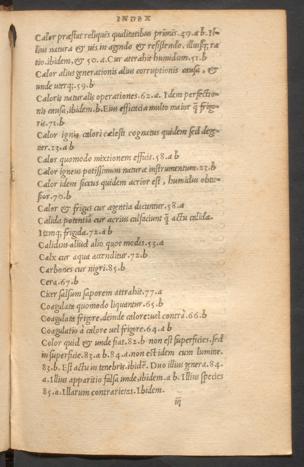 INDEX
Calor præstat reliquis qualitatibus primis.49.a b. Il-
lius natura & uis in agendo & resistendo, illiusq; ra
tio. ibidem, & 50.a. Cur attrahit humidum.51.b
Calor alius generationis alius corruptionis causa, &
unde uterq;.59.b
Caloris naturalis operationes.62.a. Idem perfectio-
nis causa, ibidem.b. Eius efficacia multo maior q̃ frigo
ris.71.b
Calor ignis calori cælesti cognatus quidem sed dege
ner.23.a b
Calor quomodo mixtionem efficit.58.a b
Calor igneus potissimum naturæ instrumentum.23.b
Calor idem siccus quidem acrior est, humidus obtu-
sior.70.b
Calor & frigus cur agentia dicuntur.58.a
Calida potentia cur acrius calfaciunt q̃ actu calida.
Itemq; frigida.72.a b
Calidius aliud alio quot modis.53.a
Calx cur aqua accenditur.72.b
Carbones cur nigri.85.b
Cera.67.b
Cicer salsum saporem attrahit.77.a
Coagulata quomodo liquantur.65.b
Coagulata frigore, deinde calore: uel contrà.66.b
Coagulatio à calore uel frigore.64.a b
Color quid & unde fiat.82.b non est superficies, sed
in superficie.83.a b.84.a. non est idem cum lumine.
83.b. Est actu in tenebris. ibidẽ. Duo illius genera.84.
a. Illius apparitio falsa unde. ibidem.a b. Illius species
85.a. Illarum contrarietas. Ibidem.